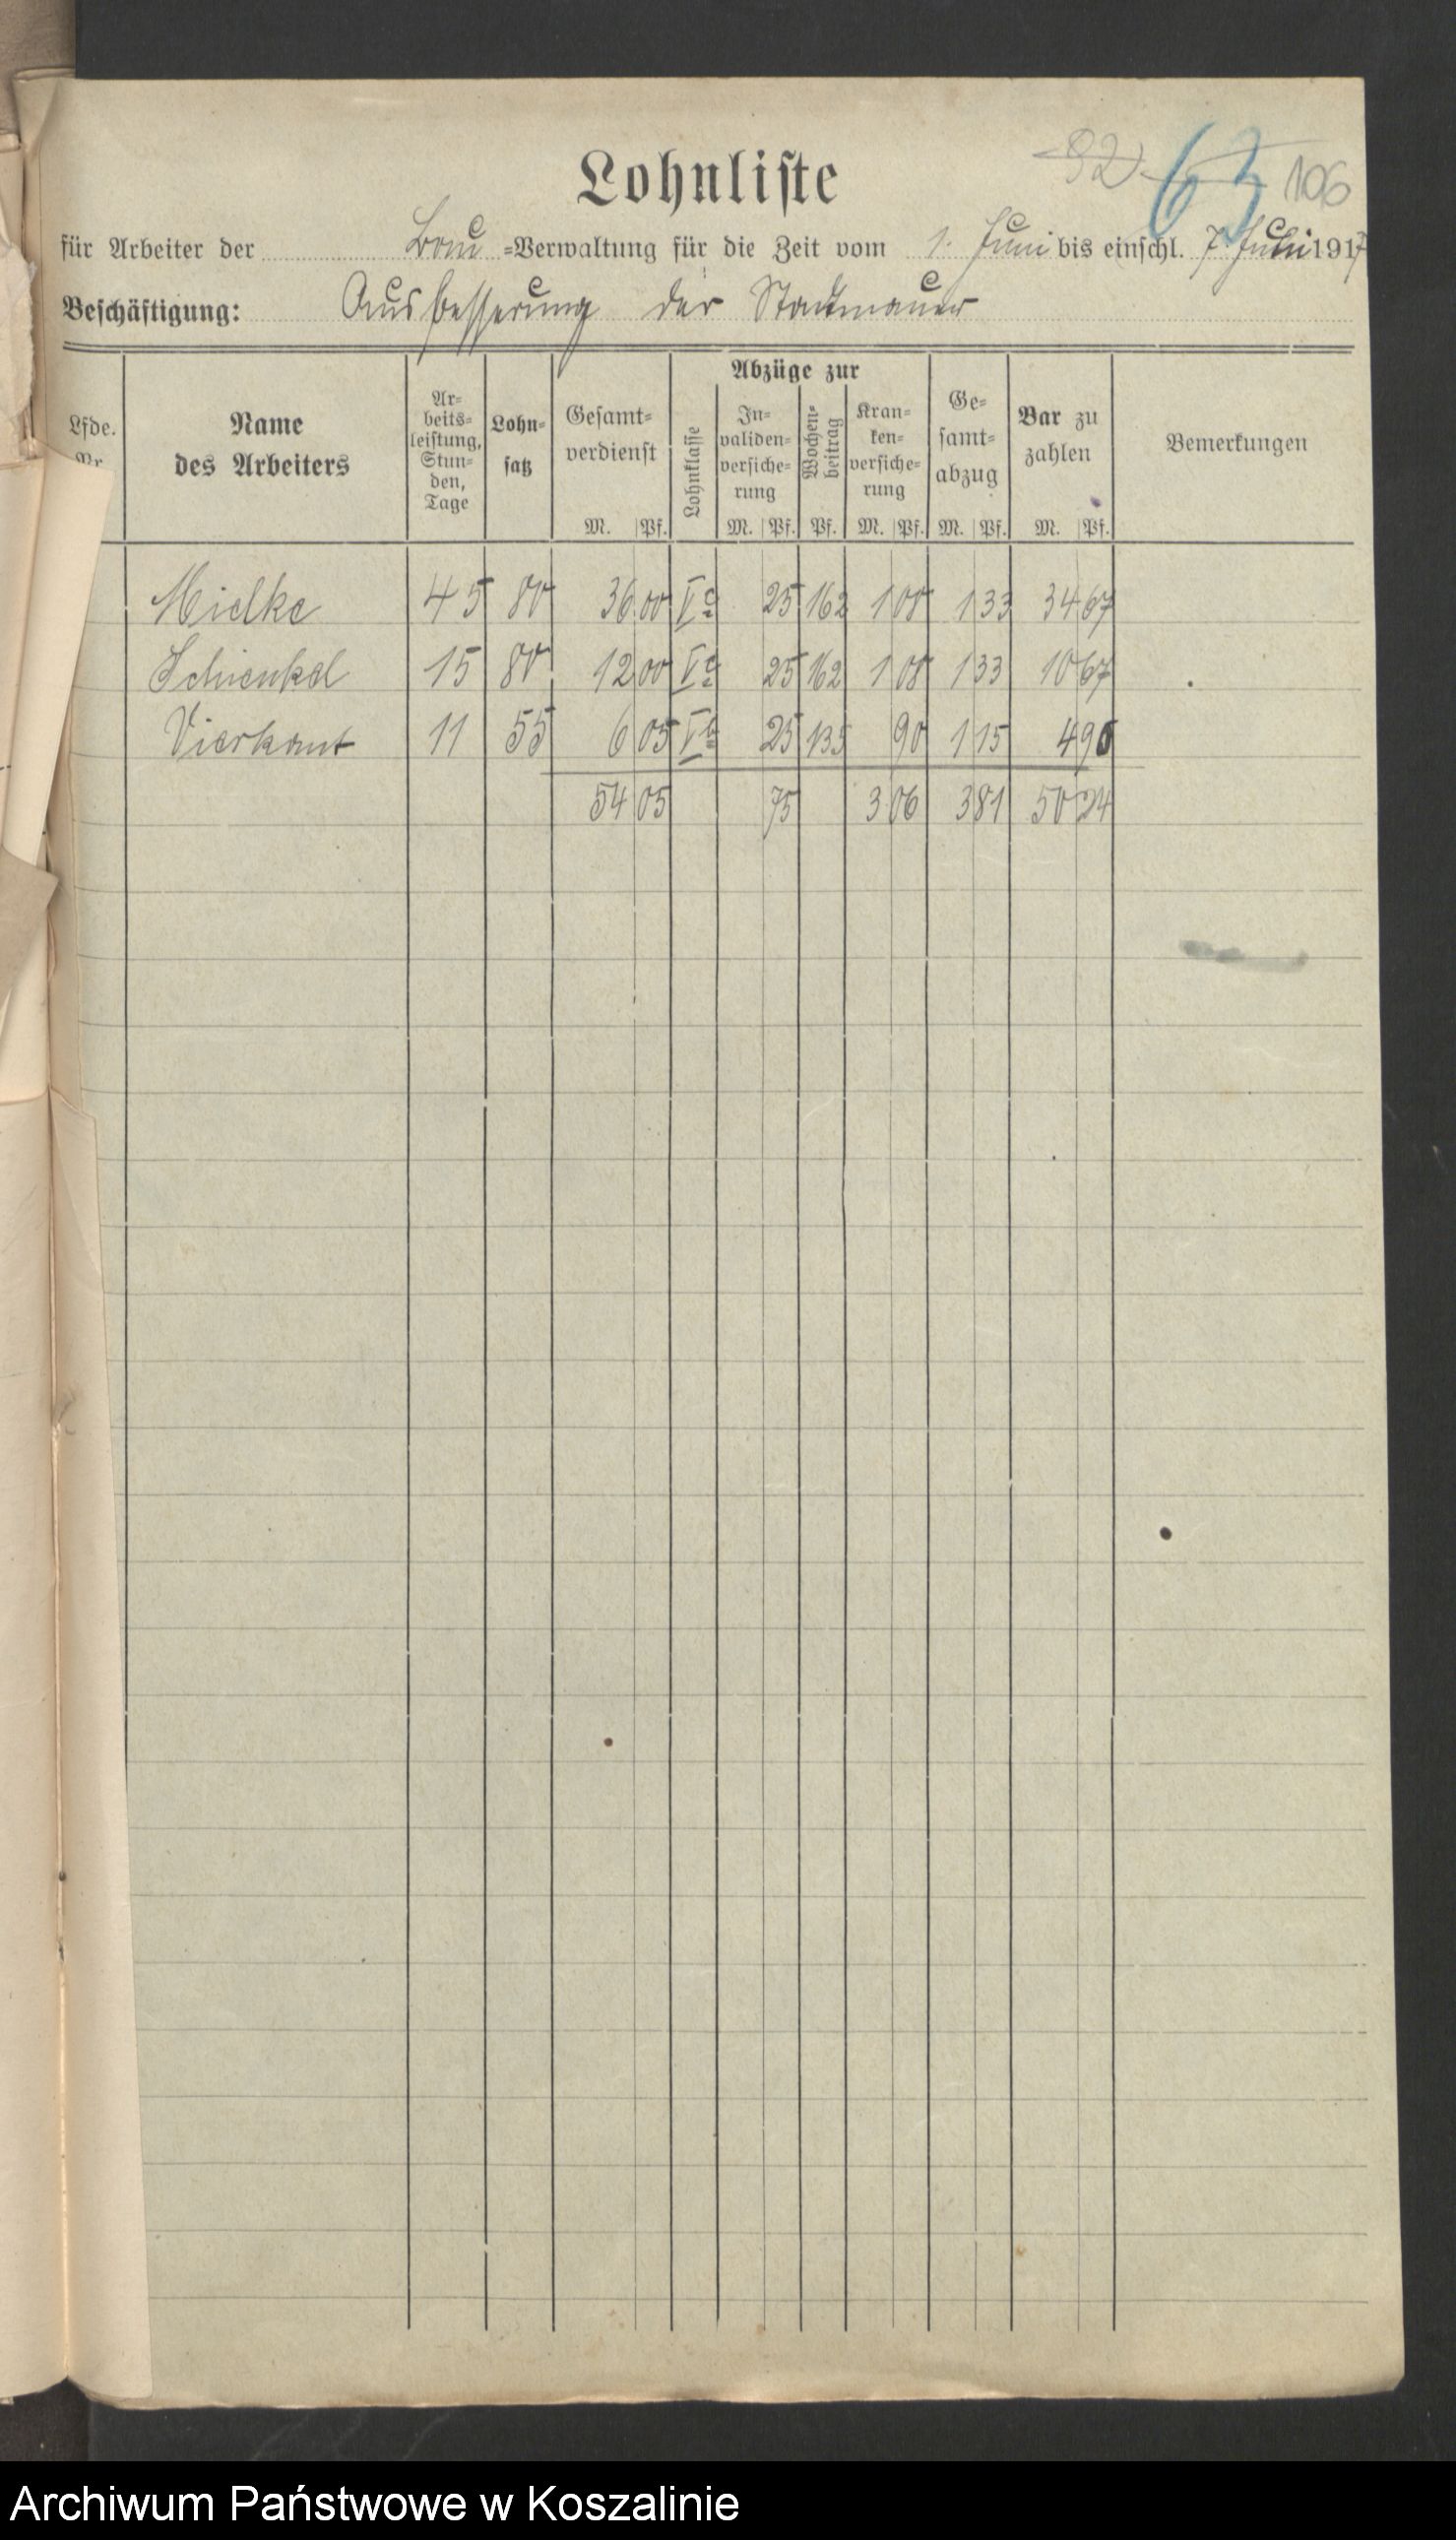 92 63 106
Lohnliste
für Arbeiter der Bau -Verwaltung für die Zeit vom 1. Juni bis einschl. 7. Juli 1917
Beschäftigung: Ausbesserung der Stadtmauer
Lfde. Nr.
Name des Arbeiters
Ar-
beits-
leistung,
Stun-
den,
Tage
Lohn-
satz
Gesamt-
verdienst
M. Pf.
Lohnklasse
Abzüge zur
In-
validen-
versiche-
rung
M. Pf.
Wochen-
beitrag
Pf.
Kran-
ken-
versiche-
rung
M. Pf.
Ge-
samt-
abzug
M. Pf.
Bar zu
zahlen
M. Pf.
Bemerkungen
Mielke 45 80 36 00 Vc 25 162 1 08 1 33 34 67
Schienkel 15 80 12 00 Vc 25 162 1 08 1 33 10 67
Vierkant 11 55 6 05 Vb 25 135 90 1 15 4 90
54 05 75 3 06 3 81 50 24
Archiwum Państwowe w Koszalinie